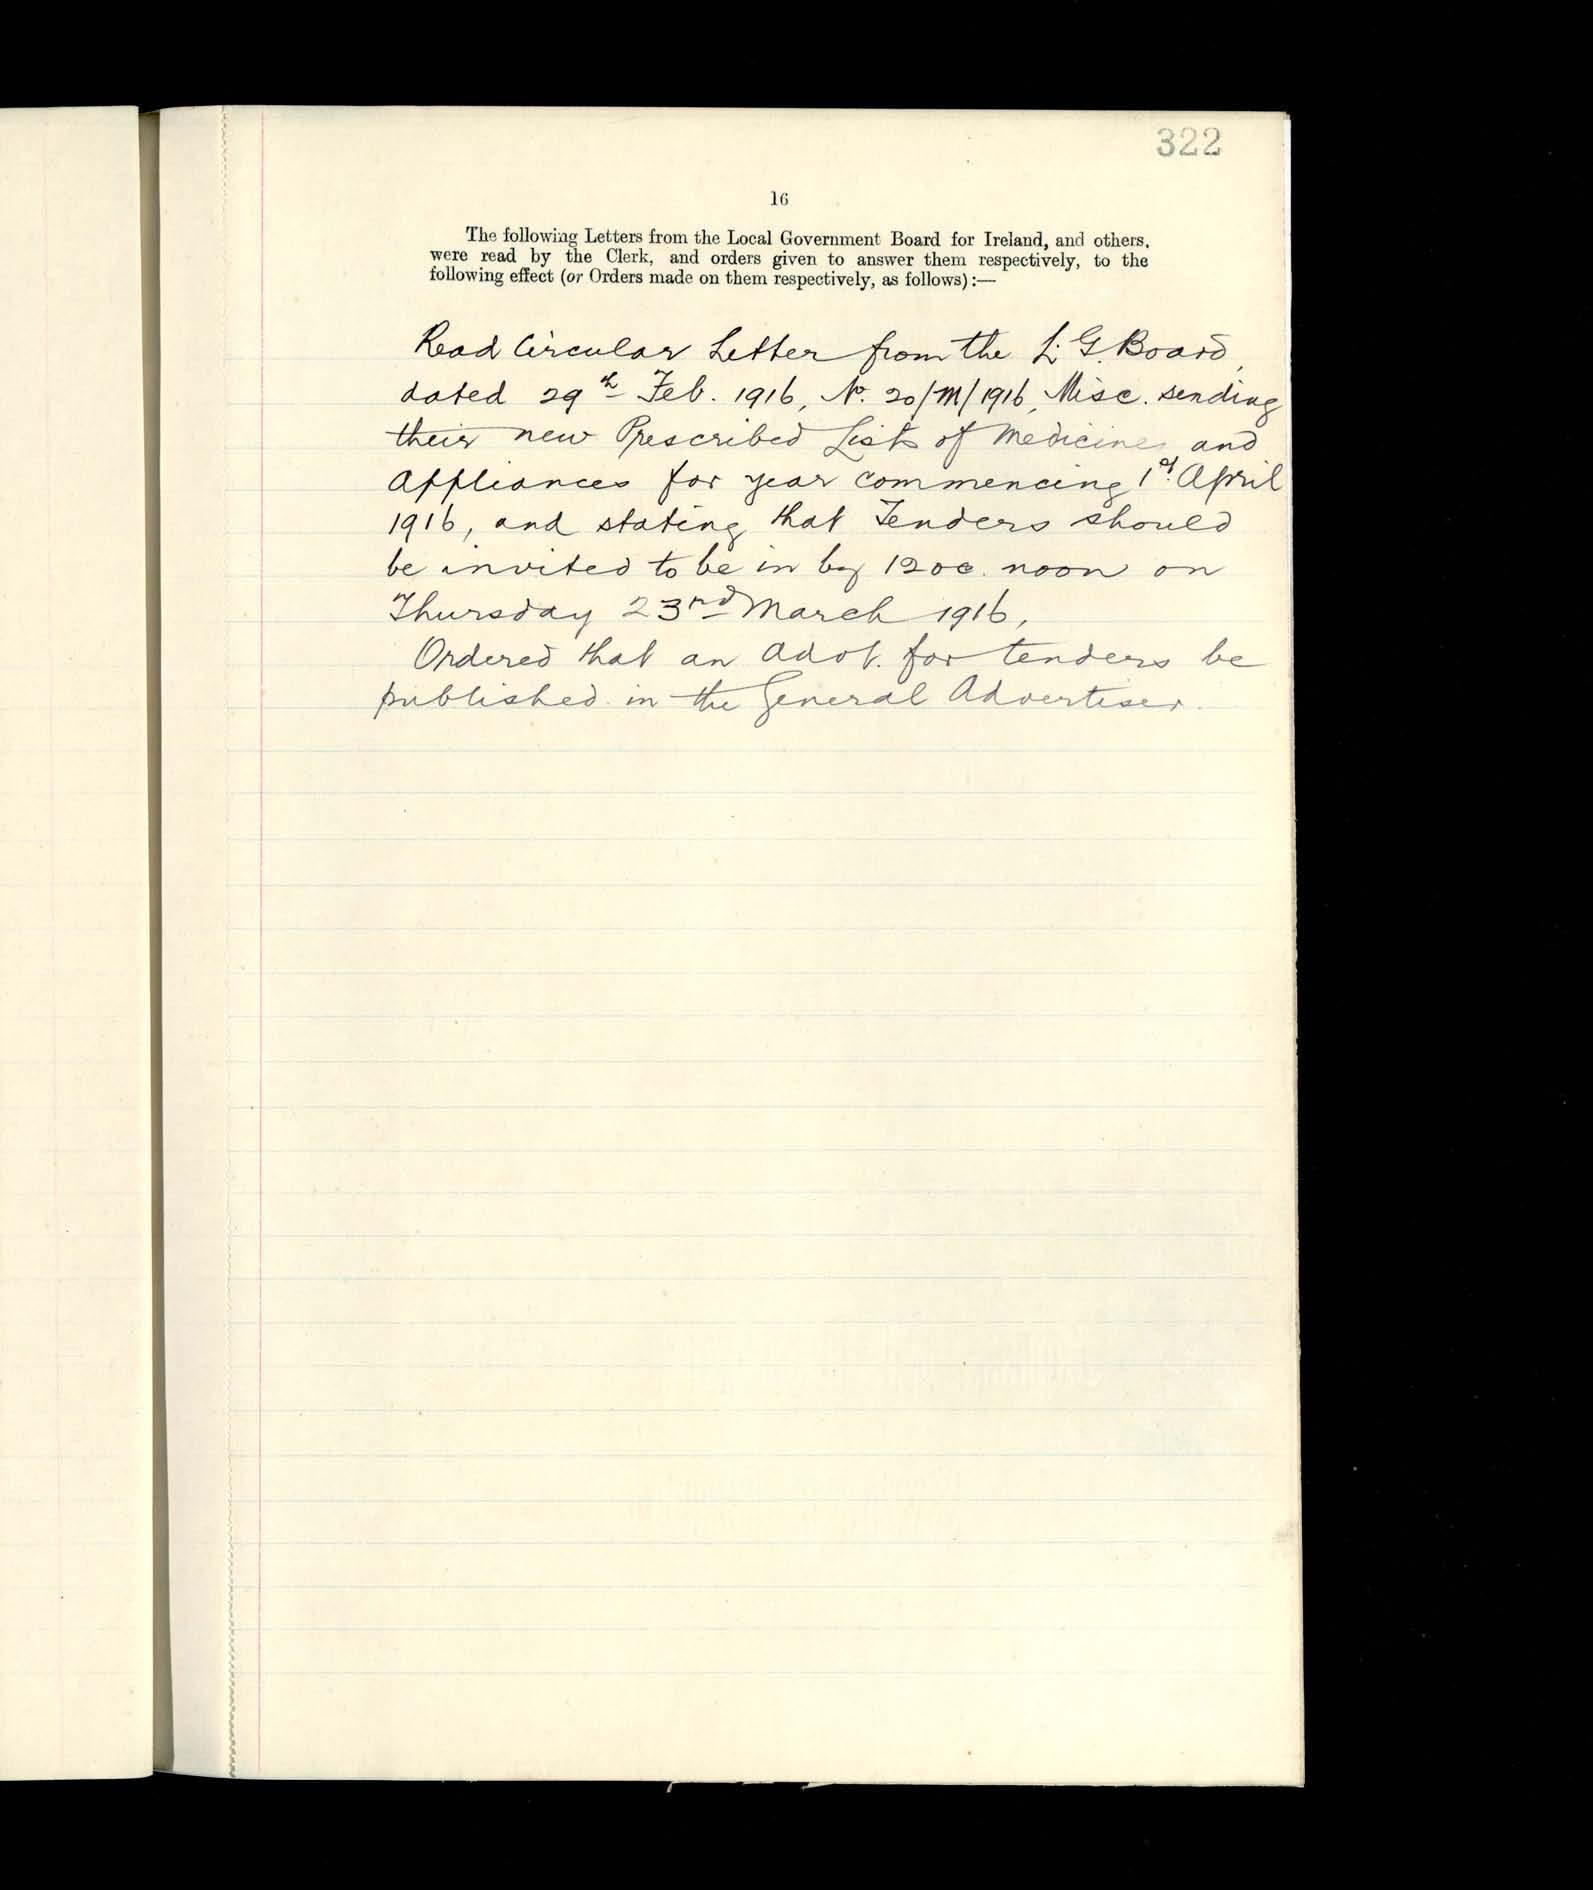 322
16
The following Letters from the Local Government Board for Ireland, and others,
were read by the Clerk, and orders given to answer them respectively, to the
following effect (or Orders made on them respectively, as follows) :—
Read Circular Letter from the L. G. Board,
dated 29th Feb. 1916, No. 20/M/1916, Misc. sending
their new Prescribed Lists of Medicines and
Appliances for year commencing 1st April
1916, and stating that Tenders should
be invited to be in by 12 oc. noon on
Thursday 23rd March 1916,
Ordered that an advt. for tenders be
published in the General Advertiser.